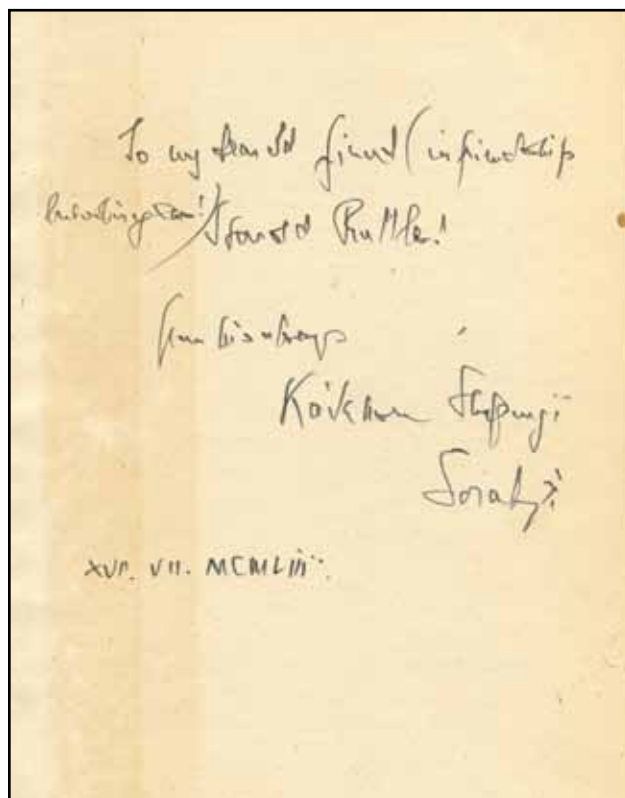 To my dear old friend (in friendship
but not in years!) Harold Rutland!
from his always
Kaikhosru Shapurji
Sorabji
XVI. VII. MCMLIII